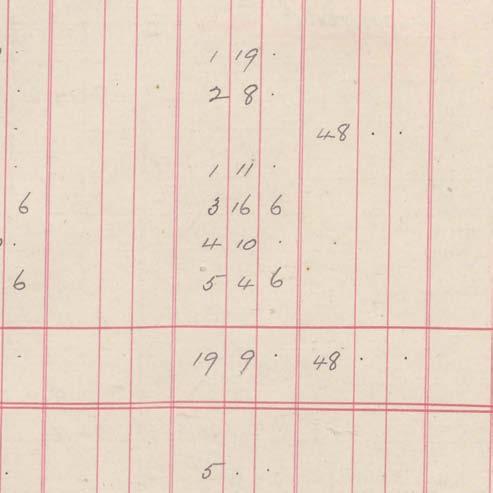 . 1 19 .
. 2 8 .
- 48 . .
. 1 11 .
6 3 16 6
. 4 10 . .
6 5 4 6
- 19 9 . 48 . .
. 5 . .